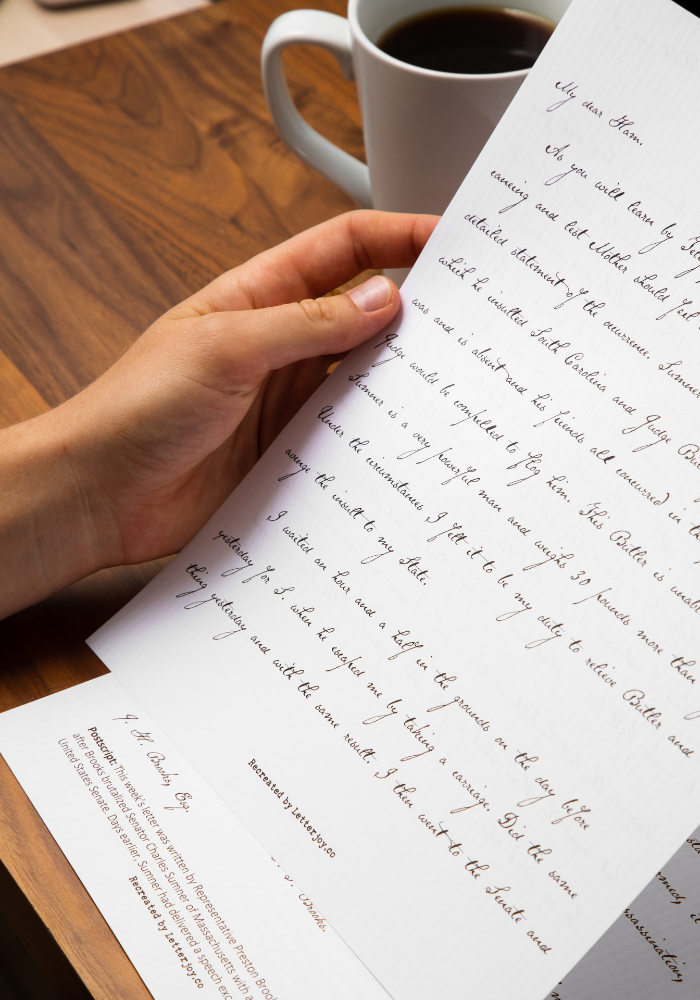 My dear Ham.
As you will learn by Tele
caneing and lest Mother should feel
detailed statement of the occurrence. Sumner
which he insulted South Carolina and Judge Bu
was and is absent and his friends all concurred in th
Judge would be compelled to flog him. This Butler is unab
Sumner is a very powerful man and weighs 30 pounds more than
Under the circumstances I felt it to be my duty to relieve Butler and
avenge the insult to my State.
I waited an hour and a half in the grounds on the day before
yesterday for S. when he escaped me by taking a carriage. Did the same
thing yesterday and with the same result. I then went to the Senate and
Recreated by Letterjoy.co
J. H. Brooks, Esq.
Postscript: This week's letter was written by Representative Preston Broo
after Brooks brutalized Senator Charles Sumner of Massachusetts with a
United States Senate. Days earlier, Sumner had delivered a speech exc
Recreated by Letterjoy.co
S. Brooks.
assassination,